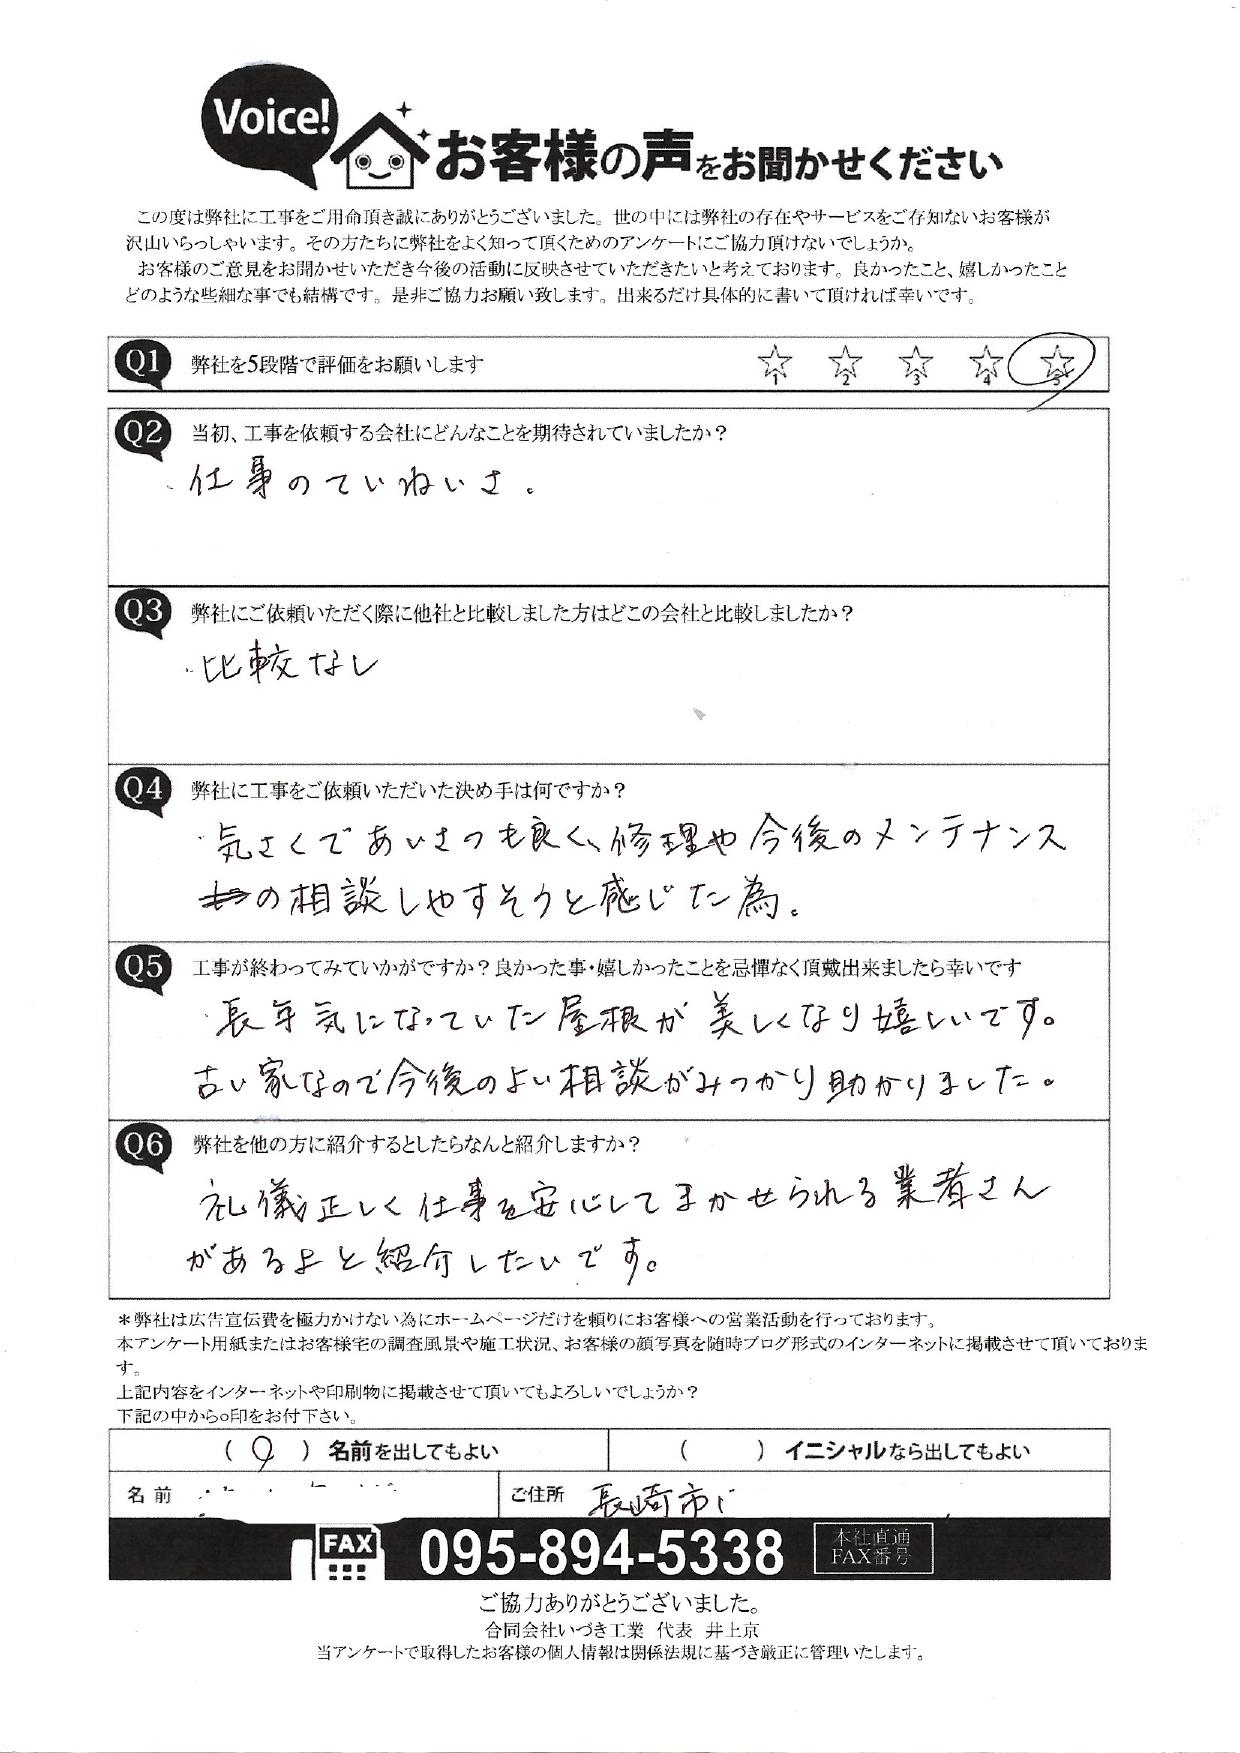 Voice!
お客様の声をお聞かせください
この度は弊社に工事をご用命頂き誠にありがとうございました。世の中には弊社の存在やサービスをご存知ないお客様が
沢山いらっしゃいます。その方たちに弊社をよく知って頂くためのアンケートにご協力頂けないでしょうか。
お客様のご意見をお聞かせいただき今後の活動に反映させていただきたいと考えております。良かったこと、嬉しかったこと
どのような些細な事でも結構です。是非ご協力お願い致します。出来るだけ具体的に書いて頂ければ幸いです。
Q1 弊社を5段階で評価をお願いします ☆1 ☆2 ☆3 ☆4 ☆5
Q2 当初、工事を依頼する会社にどんなことを期待されていましたか？
・仕事のていねいさ。
Q3 弊社にご依頼いただく際に他社と比較しました方はどこの会社と比較しましたか？
・比較なし
Q4 弊社に工事をご依頼いただいた決め手は何ですか？
・気さくであいさつも良く、修理や今後のメンテナンス
の相談しやすそうと感じた為。
Q5 工事が終わってみていかがですか？良かった事・嬉しかったことを忌憚なく頂戴出来ましたら幸いです
・長年気になっていた屋根が美しくなり嬉しいです。
古い家なので今後のよい相談がみつかり助かりました。
Q6 弊社を他の方に紹介するとしたらなんと紹介しますか？
礼儀正しく仕事を安心してまかせられる業者さん
があるよと紹介したいです。
＊弊社は広告宣伝費を極力かけない為にホームページだけを頼りにお客様への営業活動を行っております。
本アンケート用紙またはお客様宅の調査風景や施工状況、お客様の顔写真を随時ブログ形式のインターネットに掲載させて頂いておりま
す。
上記内容をインターネットや印刷物に掲載させて頂いてもよろしいでしょうか？
下記の中から○印をお付下さい。
（ ○ ）名前を出してもよい （ ）イニシャルなら出してもよい
名前 ご住所 長崎市
FAX 095-894-5338 本社直通
FAX番号
ご協力ありがとうございました。
合同会社いづき工業 代表 井上京
当アンケートで取得したお客様の個人情報は関係法規に基づき厳正に管理いたします。